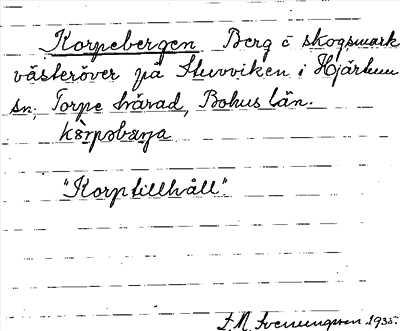 Korpebergen Berg o skogsmark
västeröver på Stuvviken i Hjärtum
sn; Torpe härad, Bohus län.
"Korptillhåll".
1935.